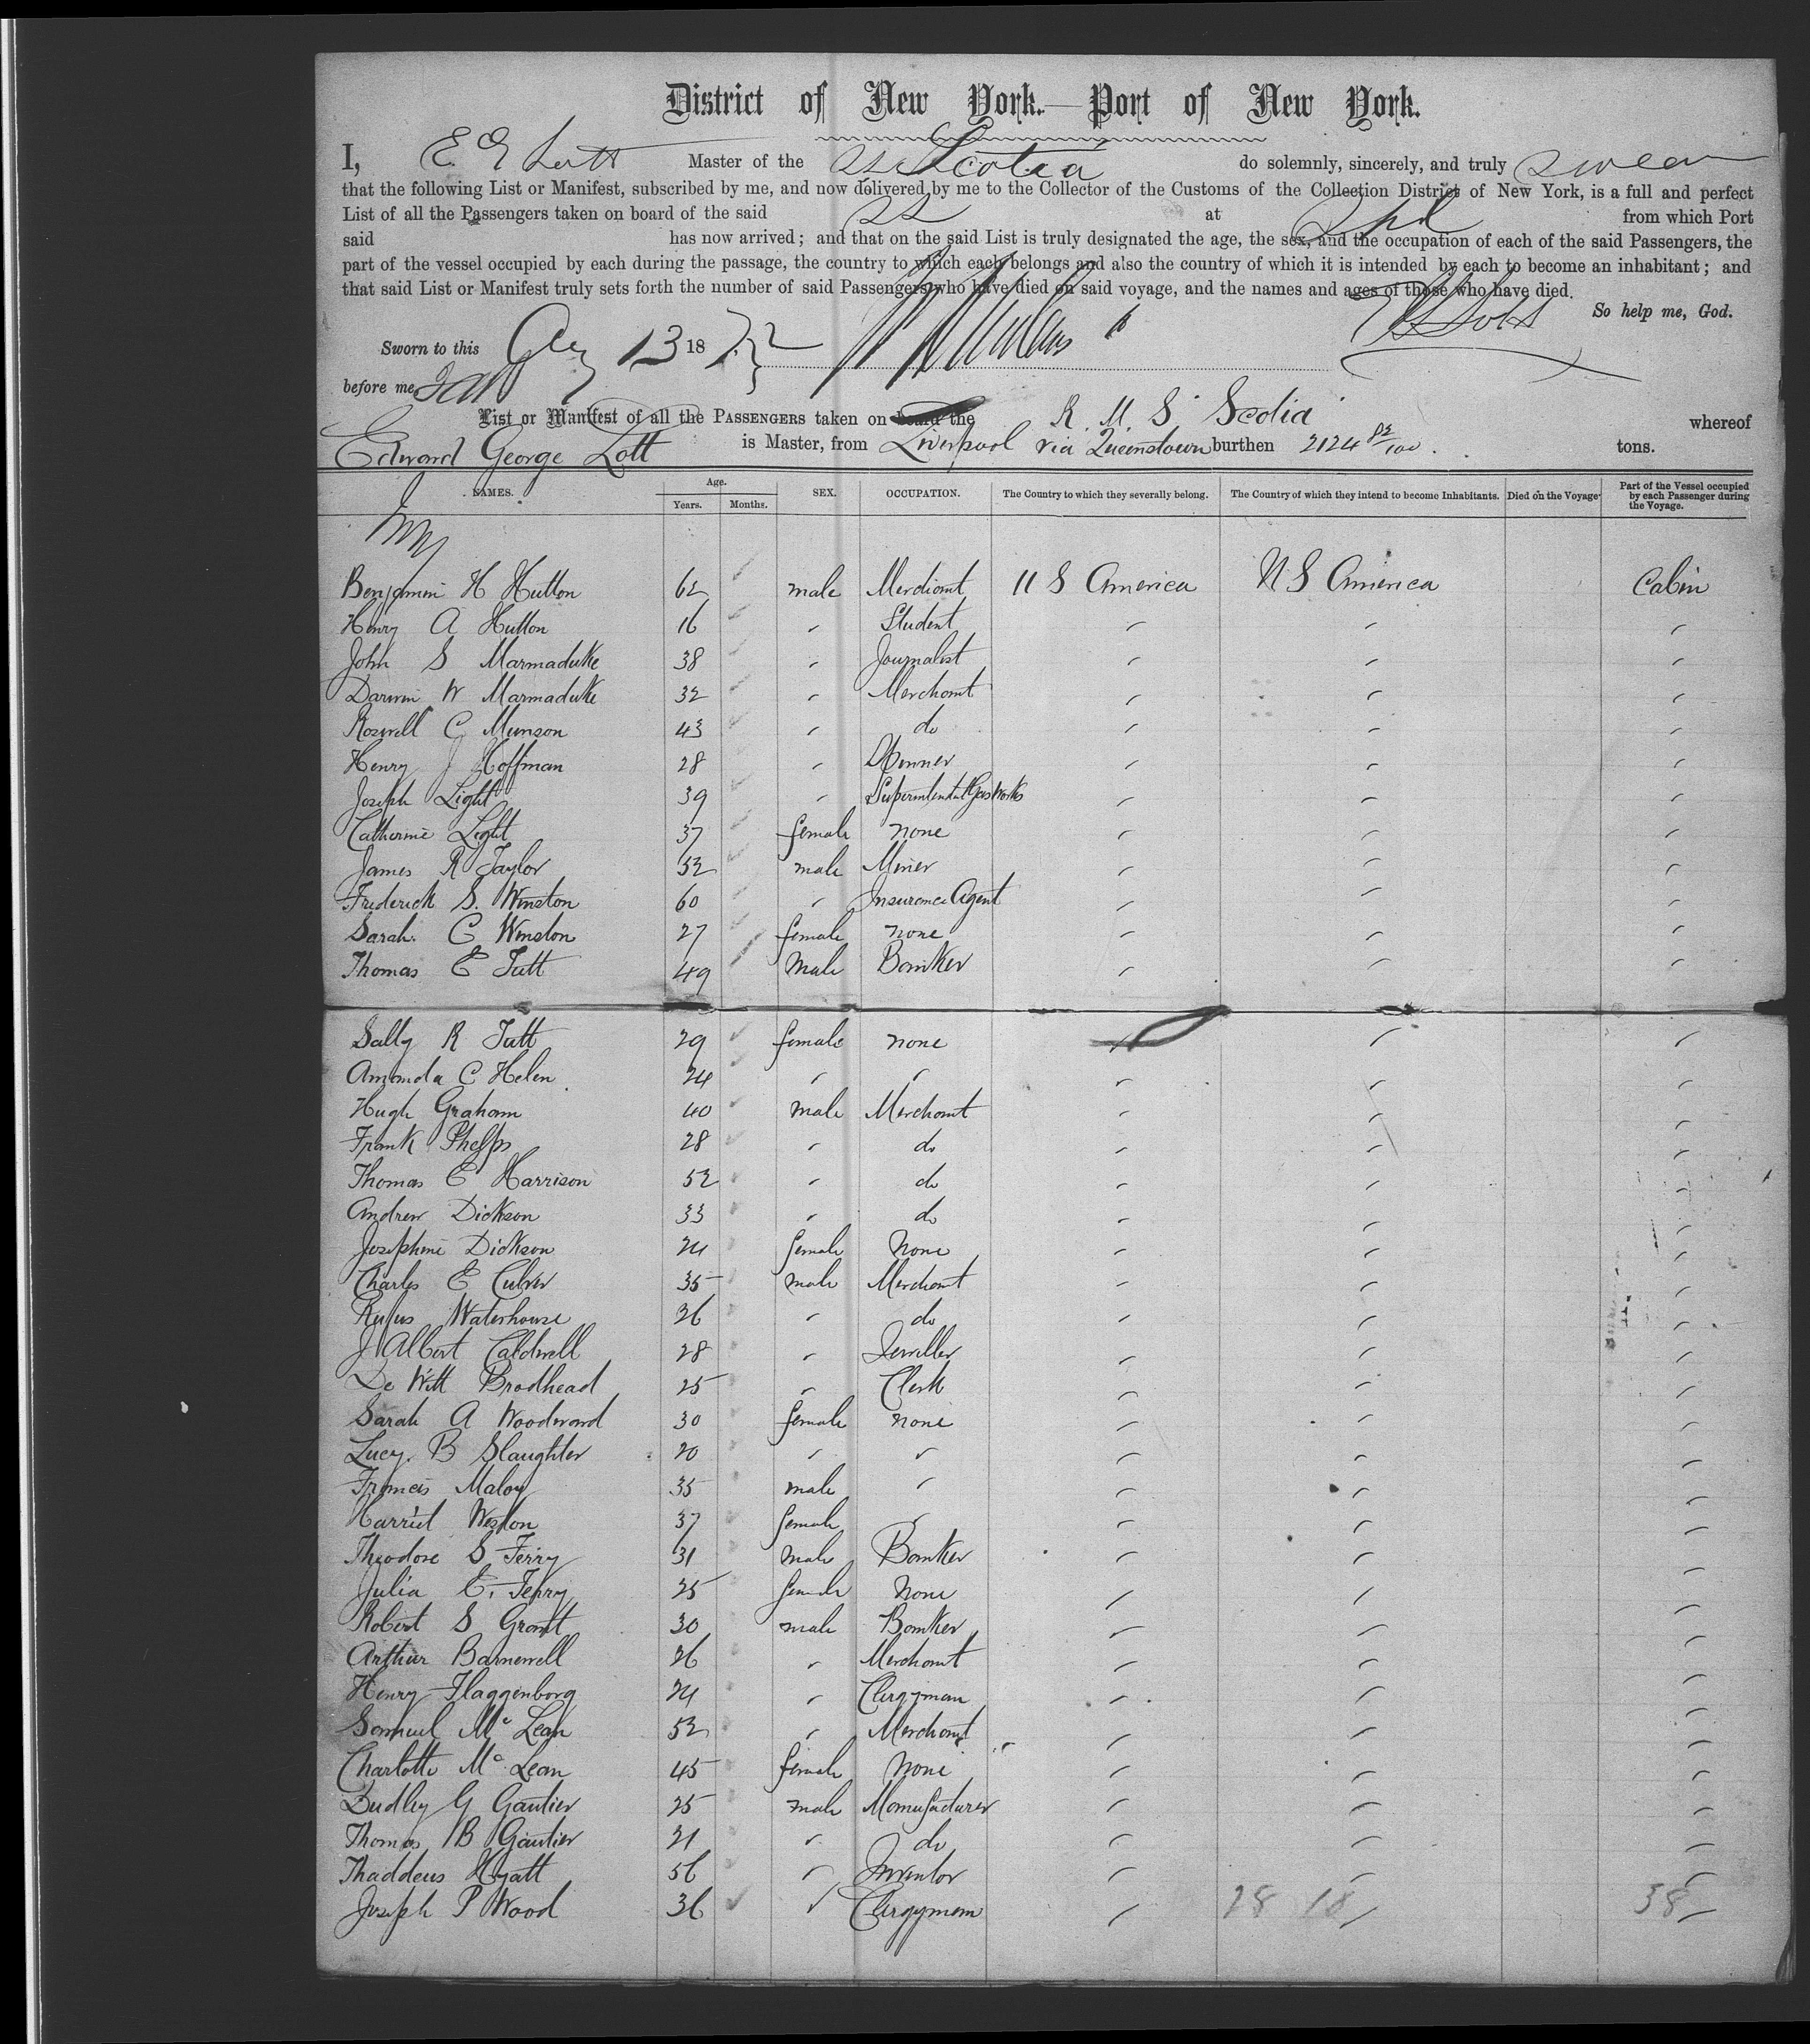 District of New York.—Port of New York.
I, E. G Lott Master of the SS Scotia do solemnly, sincerely, and truly swear
that the following List or Manifest, subscribed by me, and now delivered by me to the Collector of the Customs of the Collection District of New York, is a full and perfect
List of all the Passengers taken on board of the said SS at Lpl from which Port
said has now arrived; and that on the said List is truly designated the age, the sex, and the occupation of each of the said Passengers, the
part of the vessel occupied by each during the passage, the country to which each belongs and also the country of which it is intended by each to become an inhabitant; and
that said List or Manifest truly sets forth the number of said Passengers who have died on said voyage, and the names and ages of those who have died.
So help me, God.
Sworn to this 13 1872
before me
List or Manifest of all the PASSENGERS taken on board the R. M. S. Scotia whereof
Edward George Lott is Master, from Liverpool via Queenstown burthen 2124 82/100. tons.
NAMES. Age. Years. Months. SEX. OCCUPATION. The Country to which they severally belong. The Country of which they intend to become Inhabitants. Died on the Voyage. Part of the Vessel occupied by each Passenger during the Voyage.
Benjamin H Hutton 62 male Merchant U S America U S America Cabin
Henry A Hutton 16 " Student " " "
John S Marmaduke 38 " Journalist " " "
Darwin W Marmaduke 32 " Merchant " " "
Roswell C Munson 43 " do " " "
Henry J Hoffman 28 " " " "
Joseph Light 39 " Superintendent Gas Works " " "
Catherine Light 37 female none " " "
James R Taylor 52 male Miner " " "
Frederick S. Winston 60 " Insurance Agent " " "
Sarah C Winston 27 female none " " "
Thomas E Tutt 49 Male Banker " " "
Sally R Tutt 29 female none " " "
Amanda C Helen 24 " " " " "
Hugh Graham 40 male Merchant " " "
Frank Phelps 28 " do " " "
Thomas E Harrison 52 " do " " "
Andrew Dickson 33 " do " " "
Josephine Dickson 24 female None " " "
Charles E Culver 35 male Merchant " " "
Rufus Waterhouse 26 " do " " "
J Albert Caldwell 28 " Jeweller " " "
De Witt Brodhead 25 " Clerk " " "
Sarah A Woodward 30 female none " " "
Lucy B Slaughter 20 " " " " "
Francis Maloy 35 male " " " "
Harriet Weston 37 female " " " "
Theodore S Terry 31 male Banker " " "
Julia E. Terry 25 female None " " "
Robert S Grant 30 male Banker " " "
Arthur Barnewell 26 " Merchant " " "
Henry Flaggenborg 24 " Clergyman " " "
Samuel Mc Lean 52 " Merchant " " "
Charlotte Mc Lean 45 female None " " "
Dudley G Gautier 25 male Manufacturer " " "
Thomas B Gautier 21 " do " " "
Thaddeus Hyatt 56 " Inventor " " "
Joseph P Wood 36 " Clergyman " " "
28 10 38